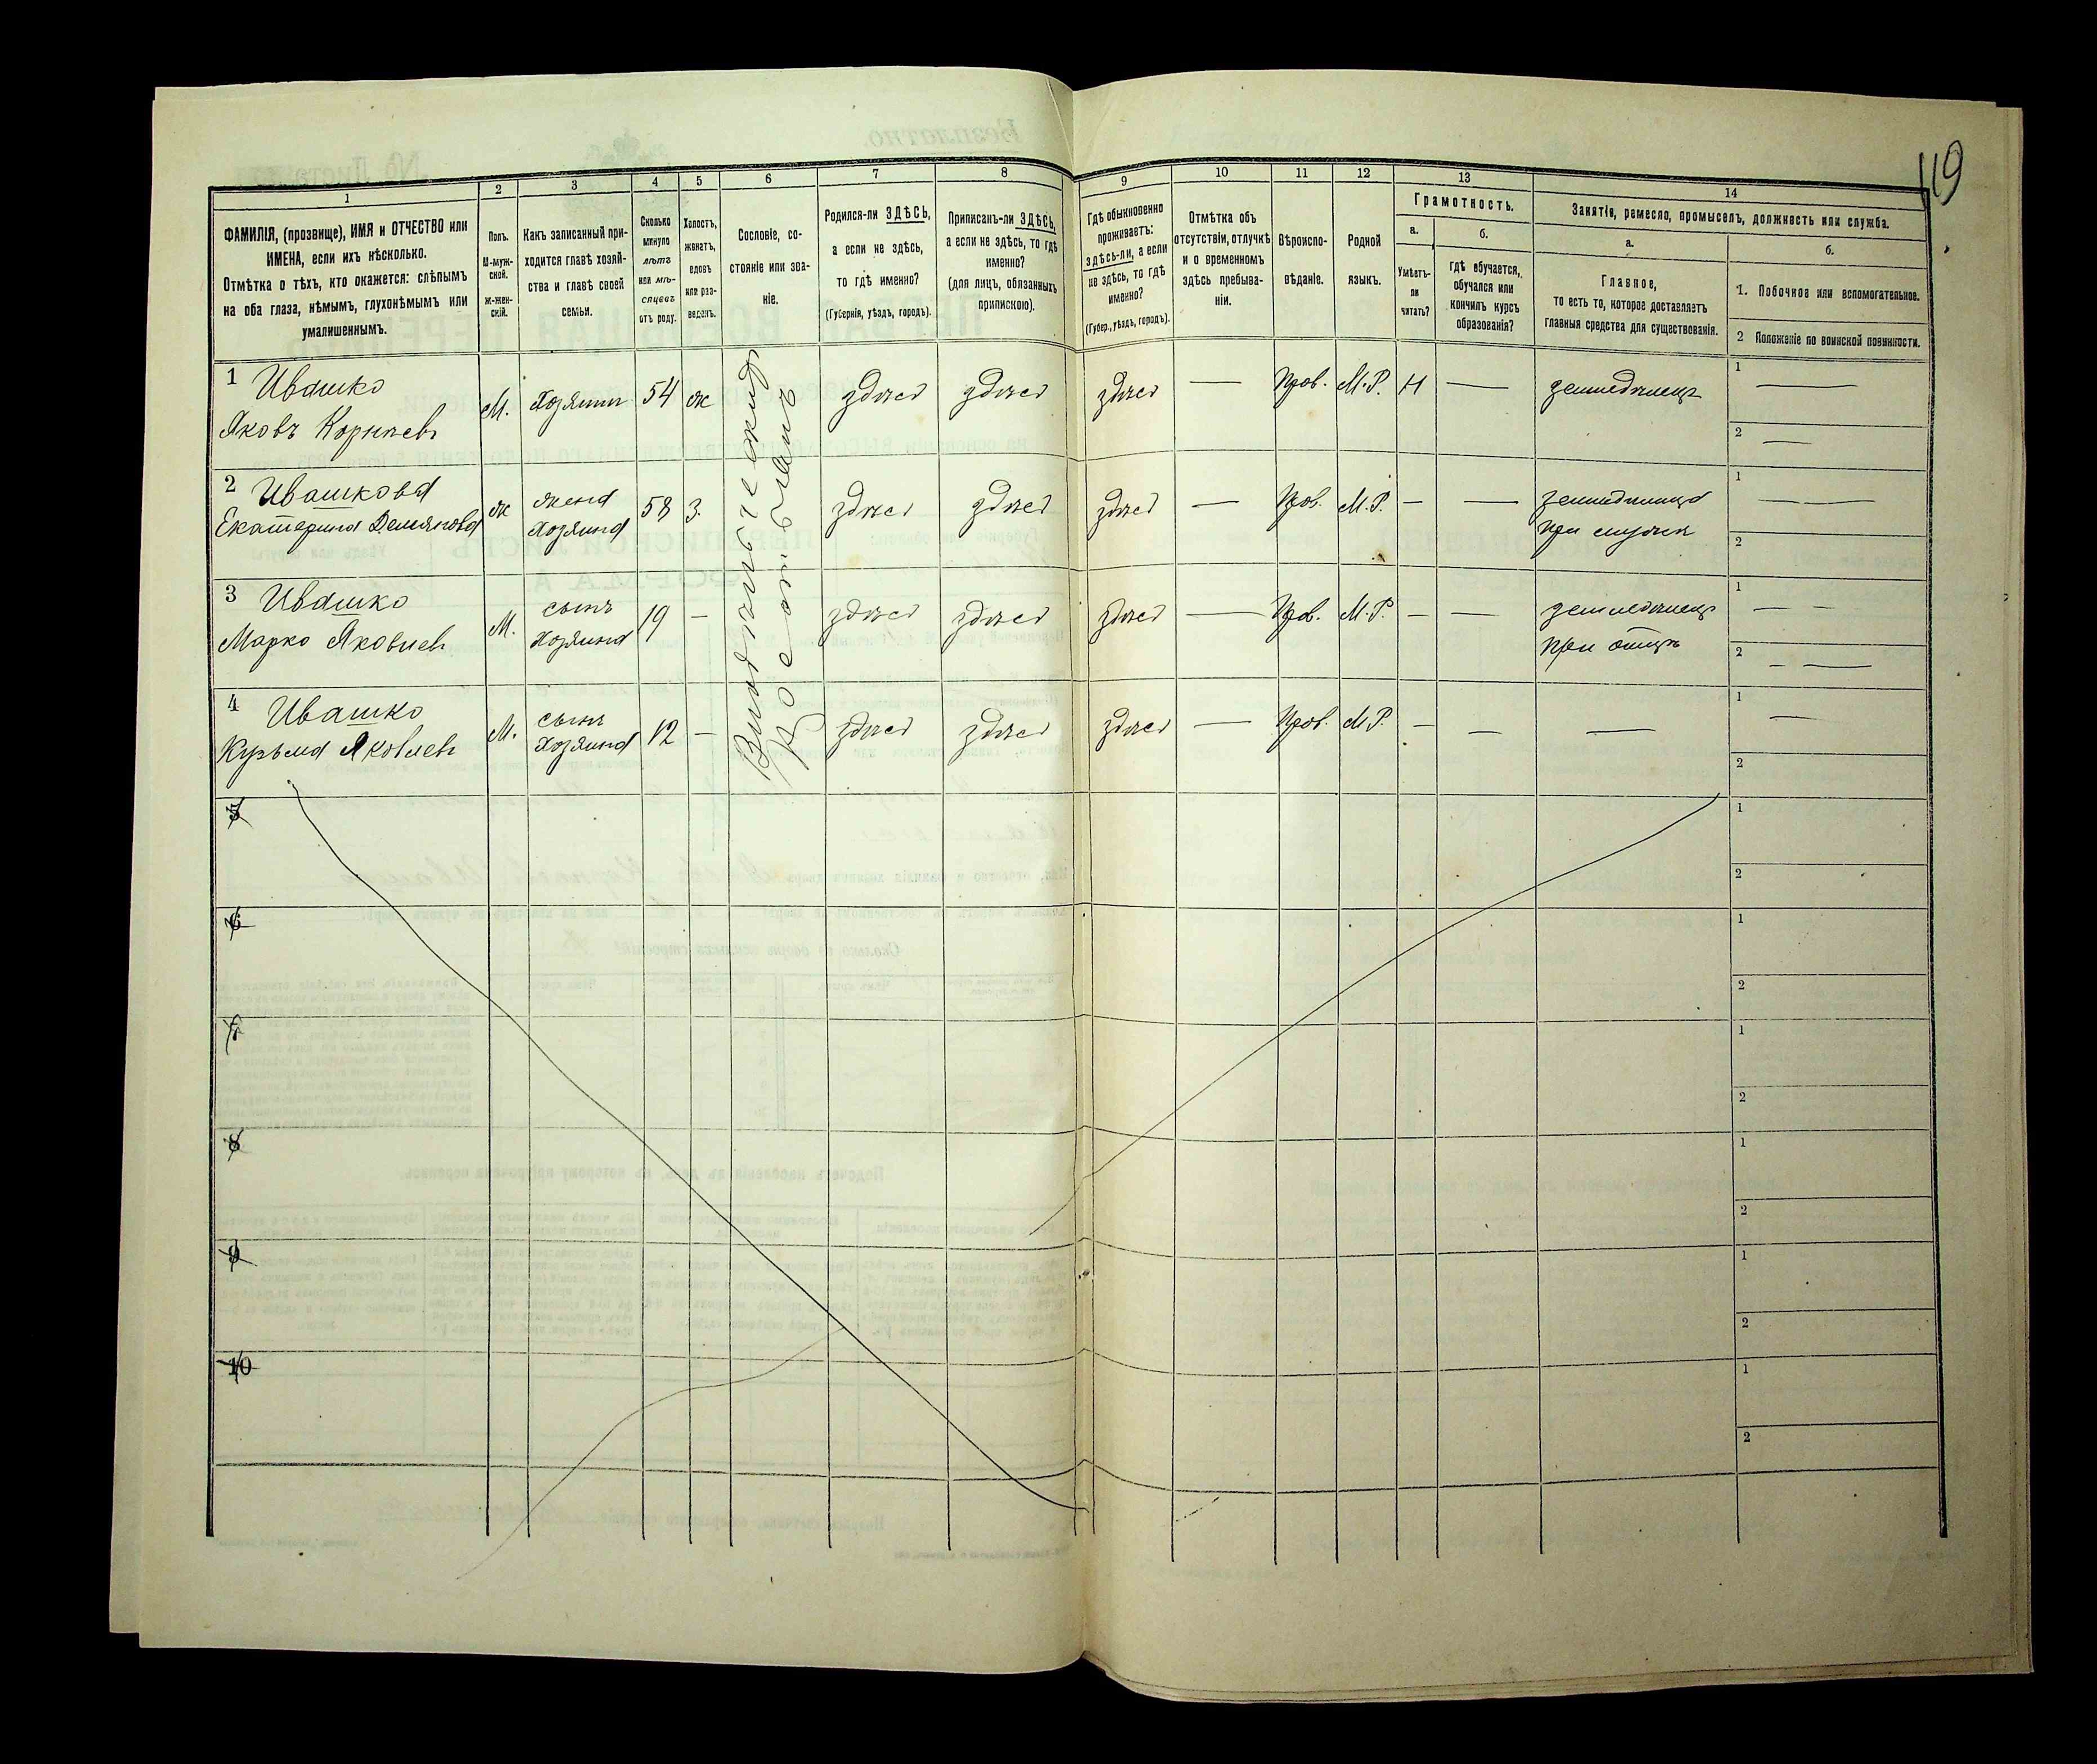 119
1
2
3
4
5
6
7
8
9
10
11
12
13
14
ФАМИЛІЯ, (прозвище), ИМЯ и ОТЧЕСТВО или
ИМЕНА, если ихъ нѣсколько.
Отмѣтка о тѣхъ, кто окажется: слѣпымъ
на оба глаза, нѣмымъ, глухонѣмымъ или
умалишеннымъ.
Полъ.
М-муж-
ской.
Ж-жен-
скій.
Какъ записанный при-
ходится главѣ хозяй-
ства и главѣ своей
семьи.
Сколько
минуло
лѣтъ
или мѣ-
сяцевъ
отъ роду.
Холостъ,
женатъ,
вдовъ
или раз-
веденъ.
Сословіе, со-
стояніе или зва-
ніе.
Родился-ли ЗДѢСЬ,
а если не здѣсь,
то гдѣ именно?
(Губернія, уѣздъ, городъ).
Приписанъ-ли ЗДѢСЬ,
а если не здѣсь, то гдѣ
именно?
(для лицъ, обязанныхъ
припискою).
Гдѣ обыкновенно
проживаетъ:
здѣсь-ли, а если
не здѣсь, то гдѣ
именно?
(Губер., уѣздъ, городъ).
Отмѣтка объ
отсутствіи, отлучкѣ
и о временномъ
здѣсь пребыва-
ніи.
Вѣроиспо-
вѣданіе.
Родной
языкъ.
Грамотность.
а.
Умѣетъ-
ли
читать?
б.
гдѣ обучается,
обучался или
кончилъ курсъ
образованія?
Занятіе, ремесло, промыселъ, должность или служба.
а.
Главное,
то есть то, которое доставляетъ
главныя средства для существованія.
б.
1. Побочное или вспомогательное.
2 Положеніе по воинской повинности.
1 Ивашко
Яковъ Корнѣевъ
М. Хозяинъ 54 ж здѣсь здѣсь здѣсь — Прав. М.Р. Н — земледѣлецъ
1 —
2 —
2 Ивашкова
Екатерина Демьянова
ж жена
хозяина
58 з. здѣсь здѣсь здѣсь — Прав. М.Р. — — земледѣлица
при мужѣ
1 — —
2
3 Ивашко
Марко Яковлевъ
М. сынъ
хозяина
19 — здѣсь здѣсь здѣсь — Прав. М.Р. — — земледѣлецъ
при отцѣ
1 — —
2 — —
4 Ивашко
Кузьма Яковлевъ
М. сынъ
хозяина
12 — здѣсь здѣсь здѣсь — Прав. М.Р. — — —
1 —
2
5
1
2
6
1
2
7
1
2
8
1
2
9
1
2
10
1
2